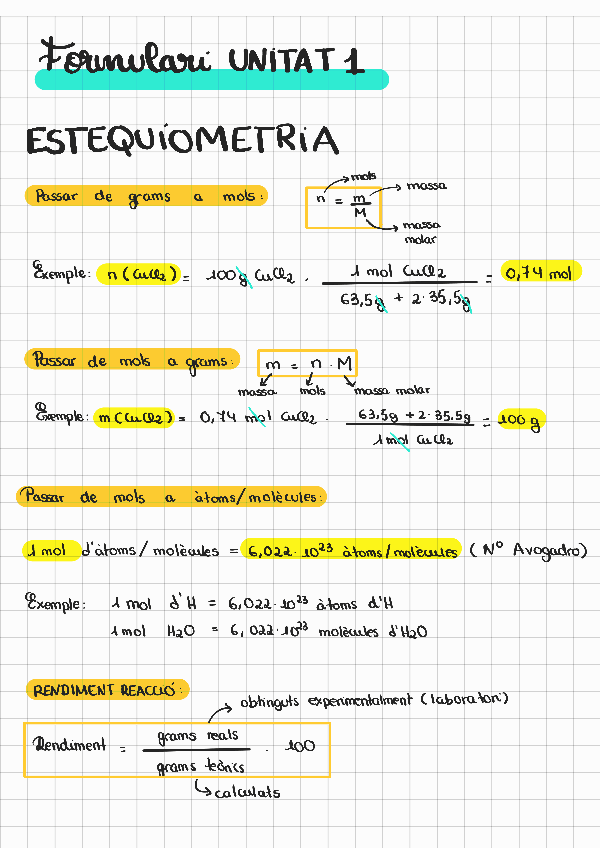 Formulari UNITAT 1
ESTEQUIOMETRIA
Passar de grams a mols:
n = m/M
mols
massa
massa molar
Exemple: n (CuCl₂) = 100g CuCl₂ · 1 mol CuCl₂ / 63,5g + 2·35,5g = 0,74 mol
Passar de mols a grams:
m = n · M
massa mols massa molar
Exemple: m (CuCl₂) = 0,74 mol CuCl₂ · 63,5g + 2·35,5g / 1 mol CuCl₂ = 100 g
Passar de mols a àtoms/molècules:
1 mol d'àtoms/molècules = 6,022·10²³ àtoms/molècules (Nº Avogadro)
Exemple: 1 mol d'H = 6,022·10²³ àtoms d'H
1 mol H₂O = 6,022·10²³ molècules d'H₂O
RENDIMENT REACCIÓ:
obtinguts experimentalment (laboratori)
Rendiment = grams reals / grams teòrics · 100
calculats